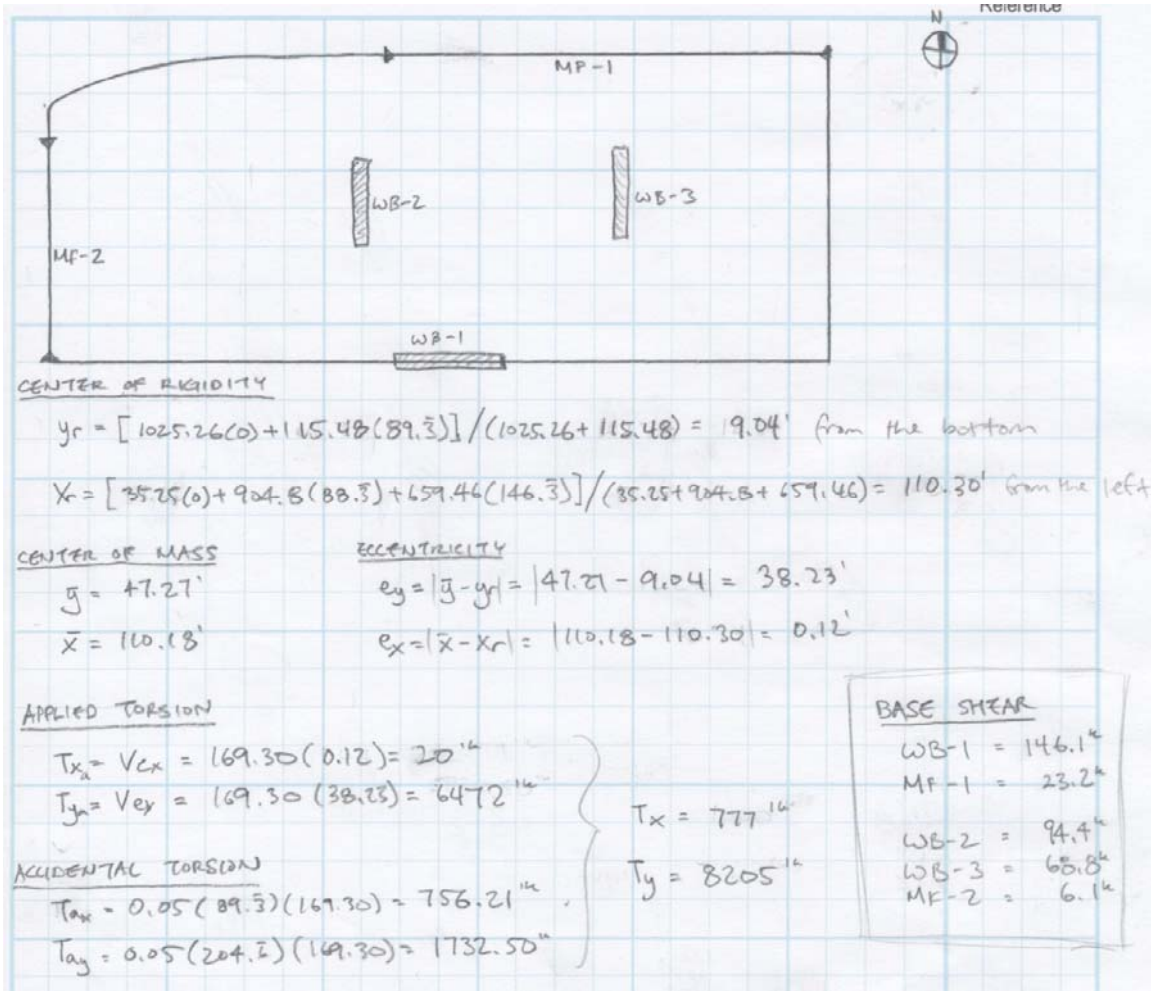 Reference
N
MF-1
WB-2
WB-3
MF-2
WB-1
CENTER OF RIGIDITY
yr = [1025.26(0)+115.48(89.3̅)]/(1025.26+115.48) = 9.04' from the bottom
Xr = [35.25(0)+904.8(88.3̅)+659.46(146.3̅)]/(35.25+904.8+659.46) = 110.30' from the left
CENTER OF MASS
ȳ = 47.27'
x̄ = 110.18'
ECCENTRICITY
ey = |ȳ-yr| = |47.27-9.04| = 38.23'
ex = |x̄-xr| = |110.18-110.30| = 0.12'
APPLIED TORSION
Txa = Vex = 169.30(0.12) = 20 'k
Tya = Vey = 169.30(38.23) = 6472 'k
ACCIDENTAL TORSION
Tax = 0.05(89.3̅)(169.30) = 756.21 'k
Tay = 0.05(204.6̅)(169.30) = 1732.50 'k
Tx = 777 'k
Ty = 8205 'k
BASE SHEAR
WB-1 = 146.1k
MF-1 = 23.2k
WB-2 = 94.4k
WB-3 = 68.8k
MF-2 = 6.1k